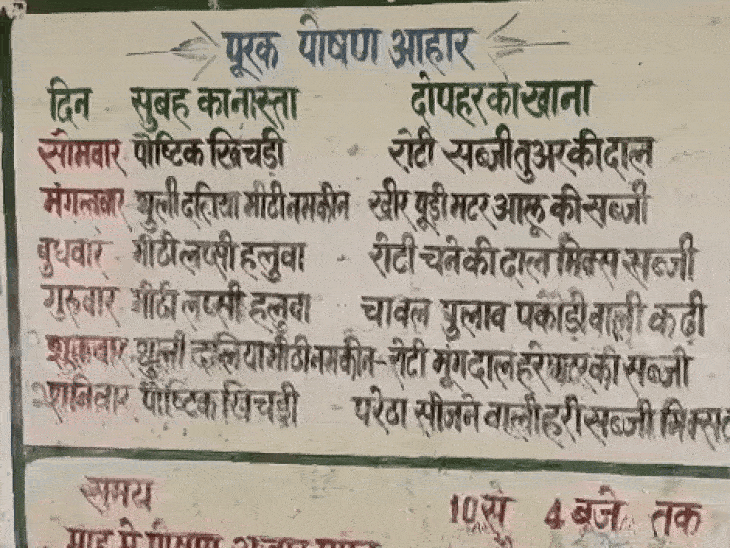 पूरक पोषण आहार
दिन सुबह का नास्ता दोपहर का खाना
सोमवार पौष्टिक खिचड़ी रोटी सब्जी तुअर की दाल
मंगलवार थुली दलिया मीठी नमकीन खीर पूड़ी मटर आलू की सब्जी
बुधवार मीठी लप्सी हलुवा रोटी चने की दाल मिक्स सब्जी
गुरुवार मीठी लप्सी हलुवा चावल पुलाव पकोड़ी वाली कढ़ी
शुक्रवार थुली दलिया मीठी नमकीन - रोटी मूंग दाल हरे मटर की सब्जी
शनिवार पौष्टिक खिचड़ी परेठा सीजने वाली हरी सब्जी मिक्स
समय 10 से 4 बजे तक